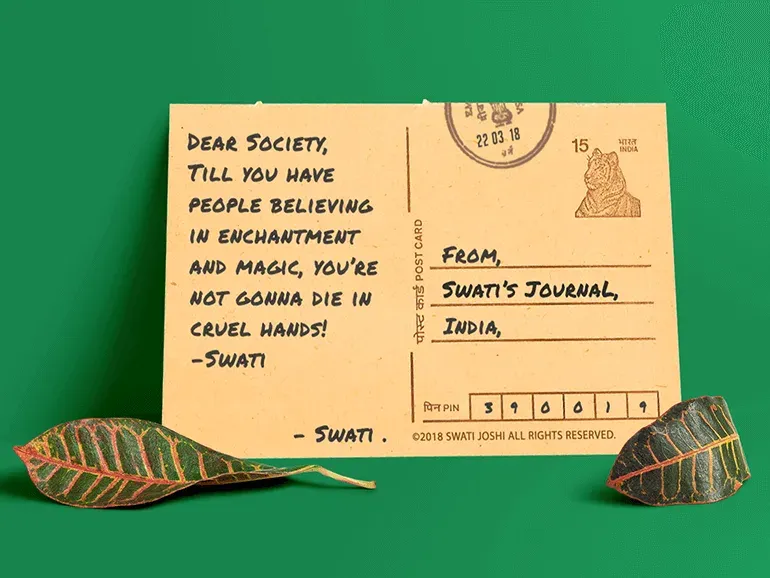 DEAR SOCIETY,
TILL YOU HAVE
PEOPLE BELIEVING
IN ENCHANTMENT
AND MAGIC, YOU'RE
NOT GONNA DIE IN
CRUEL HANDS!
-SWATI
- SWATI .
22 03 18
15
भारत
INDIA
पोस्ट कार्ड POST CARD
FROM,
SWATI'S JOURNAL,
INDIA,
पिन PIN 3 9 0 0 1 9
©2018 SWATI JOSHI ALL RIGHTS RESERVED.